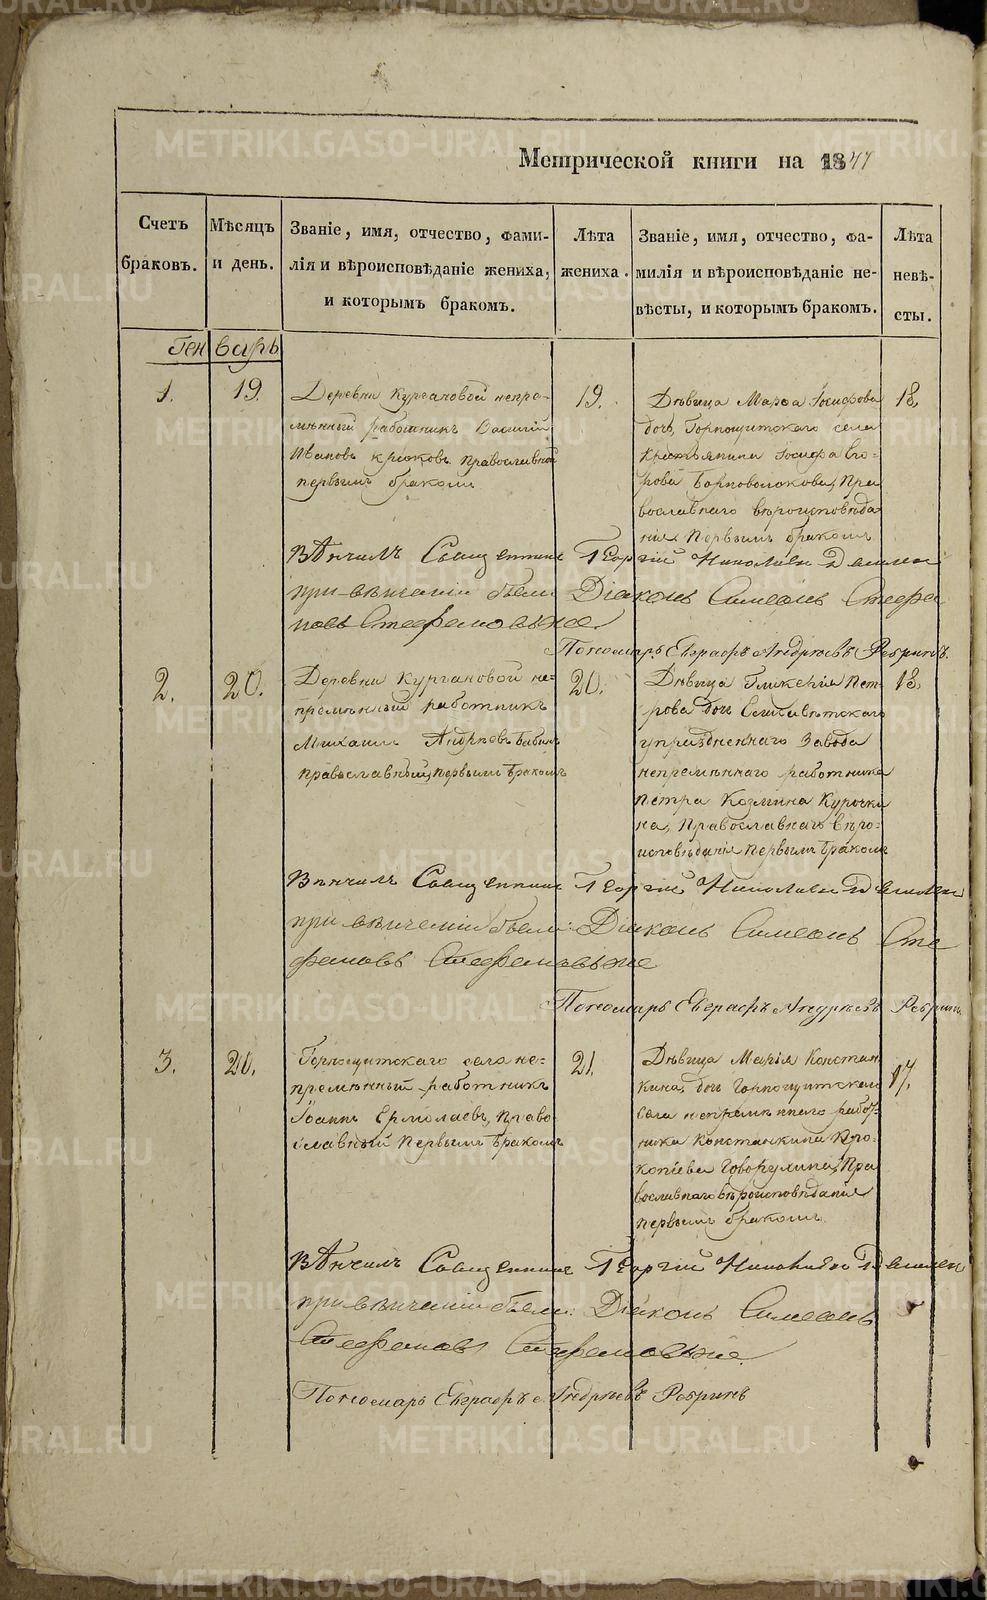 Метрической книги на 1847
Счетъ браковъ.
Мѣсяцъ и день.
Званіе, имя, отчество, фами-
лія и вѣроисповѣданіе жениха,
и которымъ бракомъ.
Лѣта
жениха.
Званіе, имя, отчество, фа-
милія и вѣроисповѣданіе не-
вѣсты, и которымъ бракомъ.
Лѣта
невѣ-
сты.
Генварь
1.
19.
Деревни Кургановой непре-
мѣнный работникъ Василій
Ивановъ Крюковъ православной
первымъ бракомъ
19.
Дѣвица Марѳа Іосифова
дочь, Горнощитскаго села
крестьянина Іосифа Его-
рова православнаго вѣроисповѣда-
нія первымъ бракомъ
18.
Вѣнчилъ Священникъ Георгій Николаевъ
при вѣнчаніи были Діаконъ Симеонъ Стефа
новъ
Пономарь Евграфъ Андрѣевъ Ребринъ.
2.
20.
Деревни Кургановой не-
премѣнный работникъ
Михаилъ Андрѣевъ Бабинъ
православный, первымъ бракомъ
20.
Дѣвица Гликерія Пет-
рова дочь Елисаветскаго
упраздненнаго завода
непремѣннаго работника
Петра Козмина Курочки
на, Православнаго вѣро-
исповѣданія первымъ бракомъ
18.
Вѣнчилъ Священникъ Георгій Николаевъ
при вѣнчаніи были: Діаконъ Симеонъ Сте
фановъ
Пономарь Евграфъ Андрѣевъ Ребринъ
3.
20.
Горнощитскаго села не-
премѣнный работникъ
Іоаннъ Ермолаевъ, Право-
славный первымъ бракомъ
21.
Дѣвица Марія Констан
тина, дочь Горнощитскаго
села непремѣннаго работ-
ника Константина Про-
копіева Говорухина, Пра
вославнаго вѣроисповѣданія
первымъ бракомъ
17.
Вѣнчилъ Священникъ Георгій Николаевъ
при вѣнчаніи были: Діаконъ Симеонъ
Стефановъ
Пономарь Евграфъ Андрѣевъ Ребринъ
METRIKI.GASO-URAL.RU